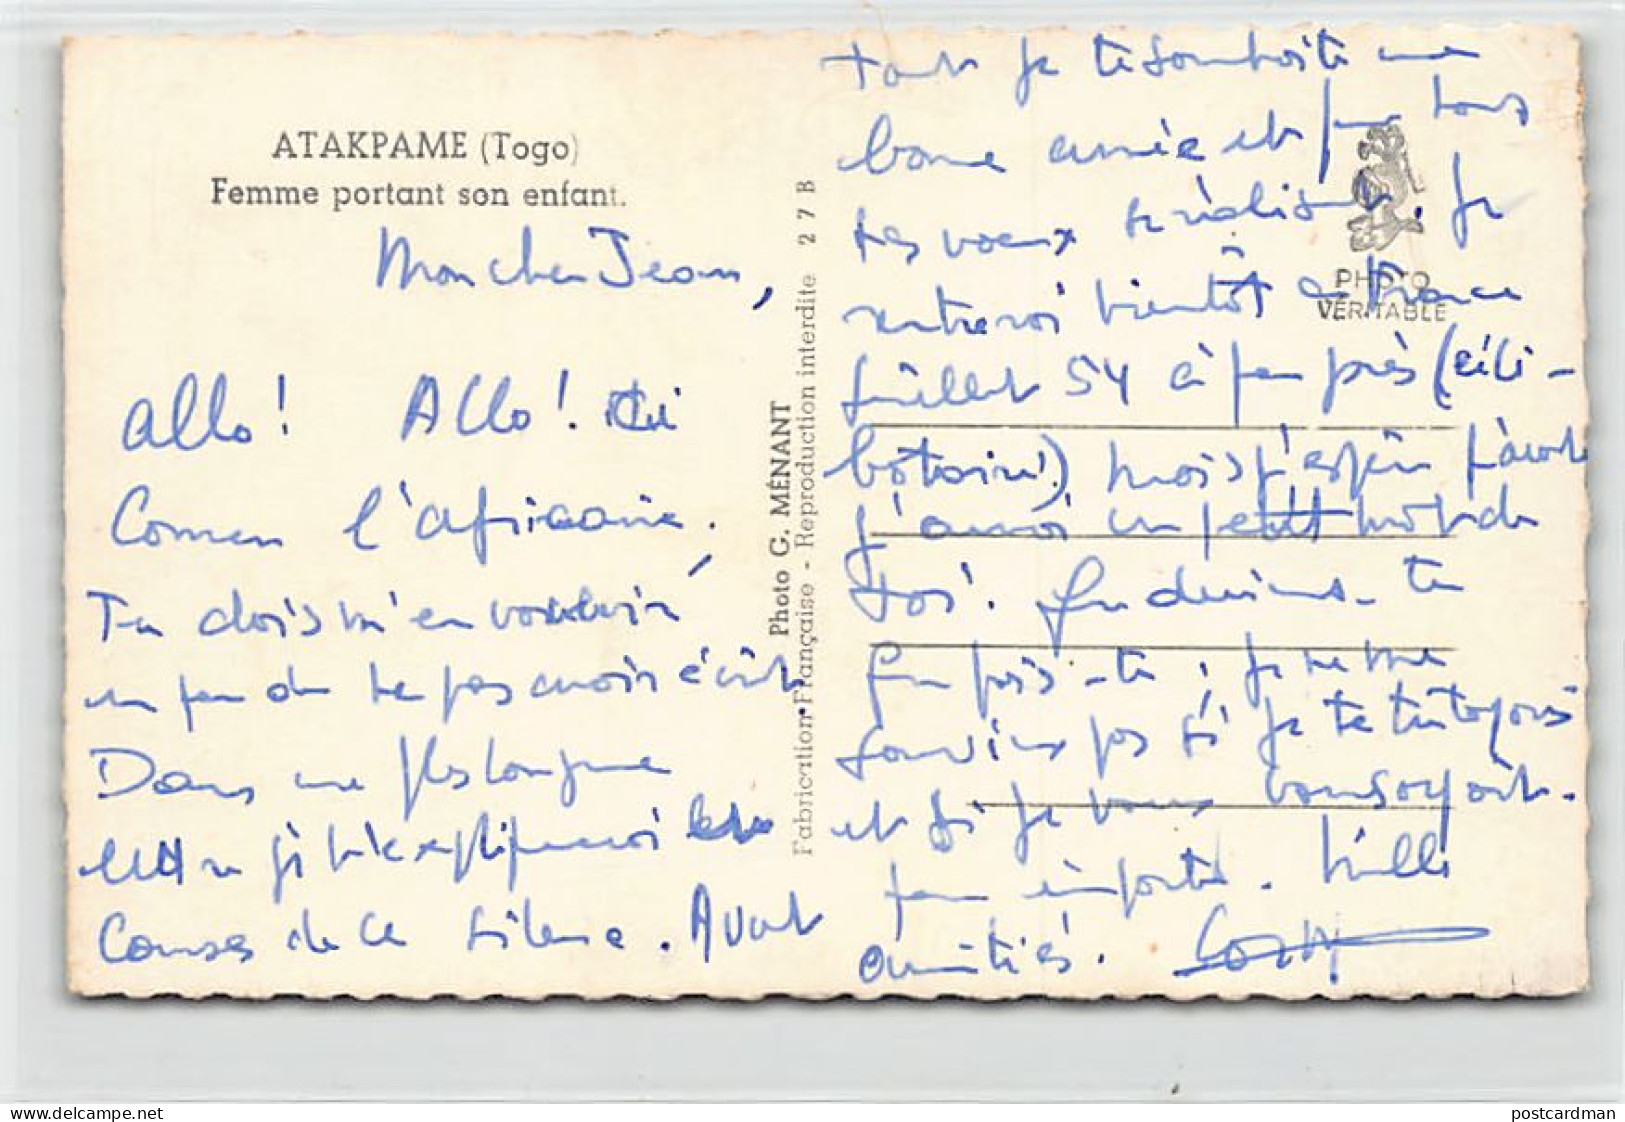 ATAKPAME (Togo)
Femme portant son enfant.
Mon cher Jean,
Allo! Allo! Ici
l'africaine.
Tu dois m'en vouloir
un peu de ne pas avoir écrit.
Dans une plus longue
lettre je t'expliquerai les
causes de ce silence. Avant
Photo G. MÉNANT
Fabrication Française - Reproduction interdite 27B
tout je te souhaite une
bonne année et que tous
tes voeux se réalisent. Je
PHOTO
VÉRITABLE
rentrerai bientôt en France
Juillet 54 à peu près (céli-
bataire!) mais j'espère
j'aurai un petit mot de
toi. Que deviens-tu
Que fais-tu, je ne me
souviens pas si je te tutoyais
et si je vous vousoyait.
peu importe. Mille
amitiés.
www.delcampe.net
postcardman